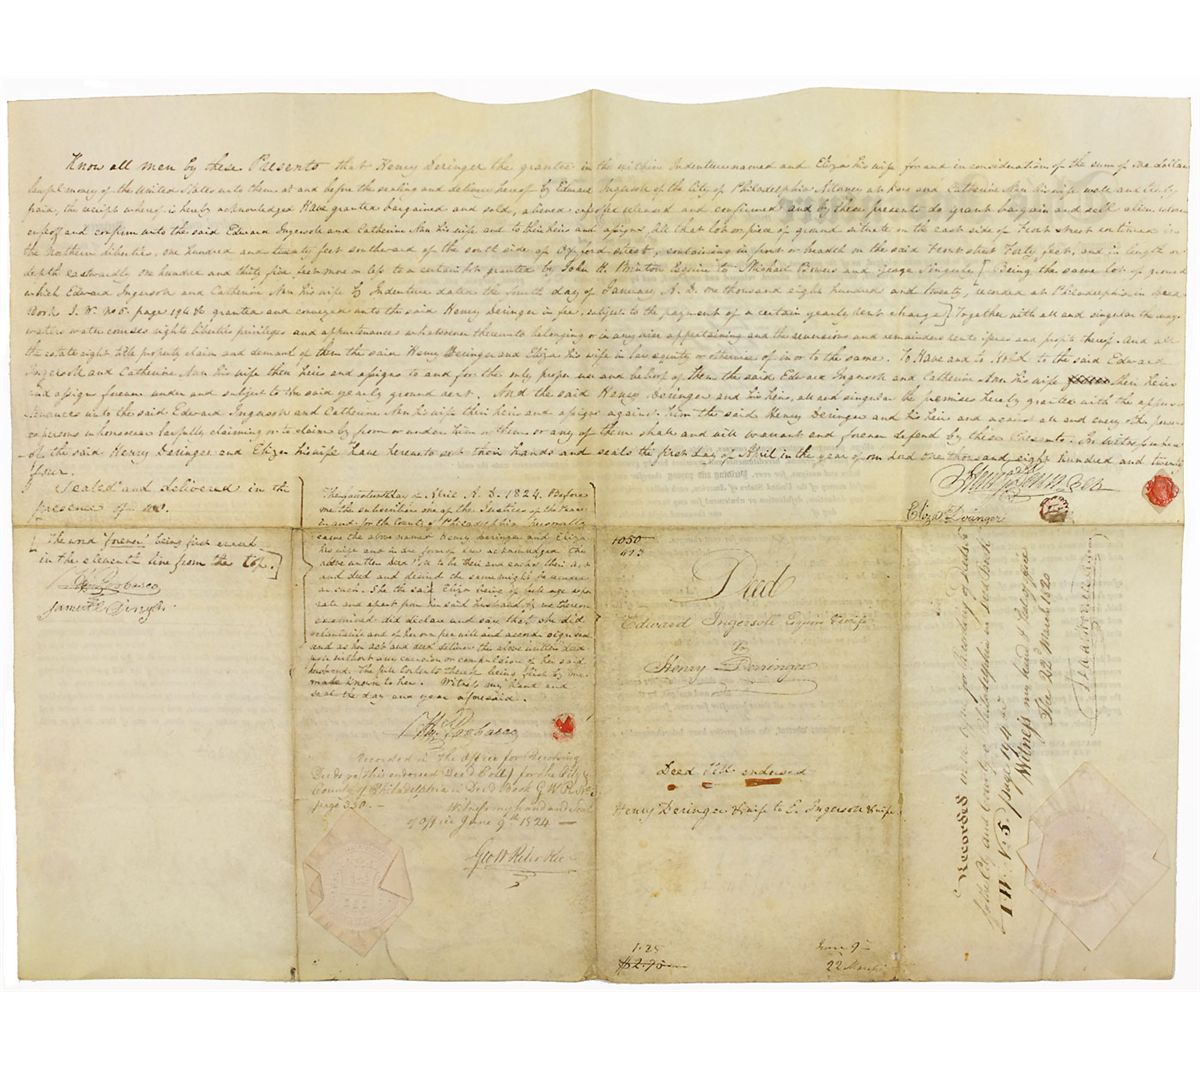 Know all men by these Presents that Henry Deringer the grantee in the within Indenture named and Eliza his wife for and in consideration of the sum of one dollar
lawful money of the United States unto them at and before the sealing and delivery hereof by Edward Ingersoll of the City of Philadelphia Attorney at Law and Catherine Ann his wife well and truly
paid, the receipt whereof is hereby acknowledged Have granted bargained and sold, aliened enfeoffed released and confirmed and by these presents do grant bargain and sell alien release
enfeoff and confirm unto the said Edward Ingersoll and Catherine Ann his wife and to their heirs and assigns All that lot or piece of ground situate on the east side of Front Street continued in
the Northern Liberties, one hundred and twenty feet southward of the south side of Oxford Street, containing in front or breadth on the said Front Street Forty feet, and in length or
depth eastwardly one hundred and thirty five feet more or less to a certain lot granted by John H. Brinton Esquire to Michael Bowers and George [Being the same lot of ground
which Edward Ingersoll and Catherine Ann his wife by Indenture dated the fourth day of January A. D. one thousand eight hundred and twenty, recorded at Philadelphia in Deed
Book I. W. No 5. page 194 &c granted and conveyed unto the said Henry Deringer in fee, subject to the payment of a certain yearly rent charge] Together with all and singular the ways
waters water courses rights liberties privileges and appurtenances whatsoever thereunto belonging or in any wise appertaining and the reversions and remainders rents issues and profits thereof. And all
the estate right title property claim and demand of them the said Henry Deringer and Eliza his wife in law equity or otherwise of in or to the same. To Have and to Hold to the said Edward
Ingersoll and Catherine Ann his wife their heirs and assigns to and for the only proper use and behoof of them the said Edward Ingersoll and Catherine Ann his wife their heirs
and assigns forever under and subject to the said yearly ground rent. And the said Henry Deringer and his heirs, all and singular the premises hereby granted with the appur-
tenances unto the said Edward Ingersoll and Catherine Ann his wife their heirs and assigns against him the said Henry Deringer and his heirs and against all and every other person
or persons whomsoever lawfully claiming or to claim by from or under him or them or any of them shall and will warrant and forever defend by these Presents. In Witness whereof
the said Henry Deringer and Eliza his wife have hereunto set their hands and seals the first day of April in the year of our Lord one thousand eight hundred and twenty
four.
Sealed and delivered in the
presence of us.
The word 'forever' being first erased
in the eleventh line from the top.]
Samuel
The day of April A. D. 1824. Before
me the subscriber one of the Justices of the Peace
in and for the County of Philadelphia Personally
came the above named Henry Deringer and Eliza
his wife and in due form of law acknowledged the
above written Deed Poll to be their and each of their act
and deed and desired the same might be recorded
as such. She the said Eliza being of full age sepa-
rate and apart from her said husband by me thereon
examined did declare and say that she did
voluntarily and of her own free will and accord sign seal
and as her act and deed deliver the above written deed
poll without any coercion or compulsion of her said
husband. The full contents thereof being first by me
made known to her. Witness my hand and
seal the day and year aforesaid.
Recorded in the Office for Recording
Deeds &c this endorsed Deed Poll for the City &
County of Philadelphia in Deed Book G W R. No
page 350. —
Witness my hand and Seal
of Office June 9th 1824 —
Henry Deringer
Eliza Deringer
1050
Deed
Edward Ingersoll Esquire & wife
to
Henry Derringer
Deed Poll endorsed
Henry Deringer & wife to E. Ingersoll & wife
1.25
$2.75
June 9th
22 March
Recorded in the office for Recording of Deeds
for the City and County of Philadelphia in Deed Book
I W. No. 5 page 194 &c
Witness my hand & Seal of office
the 22 March 1820